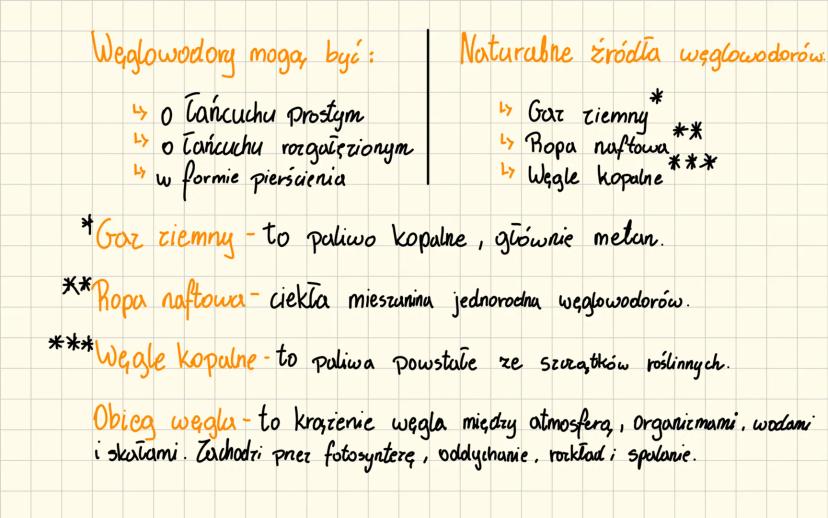 Węglowodory mogą być:
↳ o łańcuchu prostym
↳ o łańcuchu rozgałęzionym
↳ w formie pierścienia
Naturalne źródła węglowodorów.
↳ Gaz ziemny*
↳ Ropa naftowa**
↳ Węgle kopalne***
*Gaz ziemny - to paliwo kopalne, głównie metan.
**Ropa naftowa - ciekła mieszanina jednorodna węglowodorów.
***Węgle kopalne - to paliwa powstałe ze szczątków roślinnych.
Obieg węgla - to krążenie węgla między atmosferą, organizmami, wodami
i skałami. Zachodzi przez fotosyntezę, oddychanie, rozkład i spalanie.